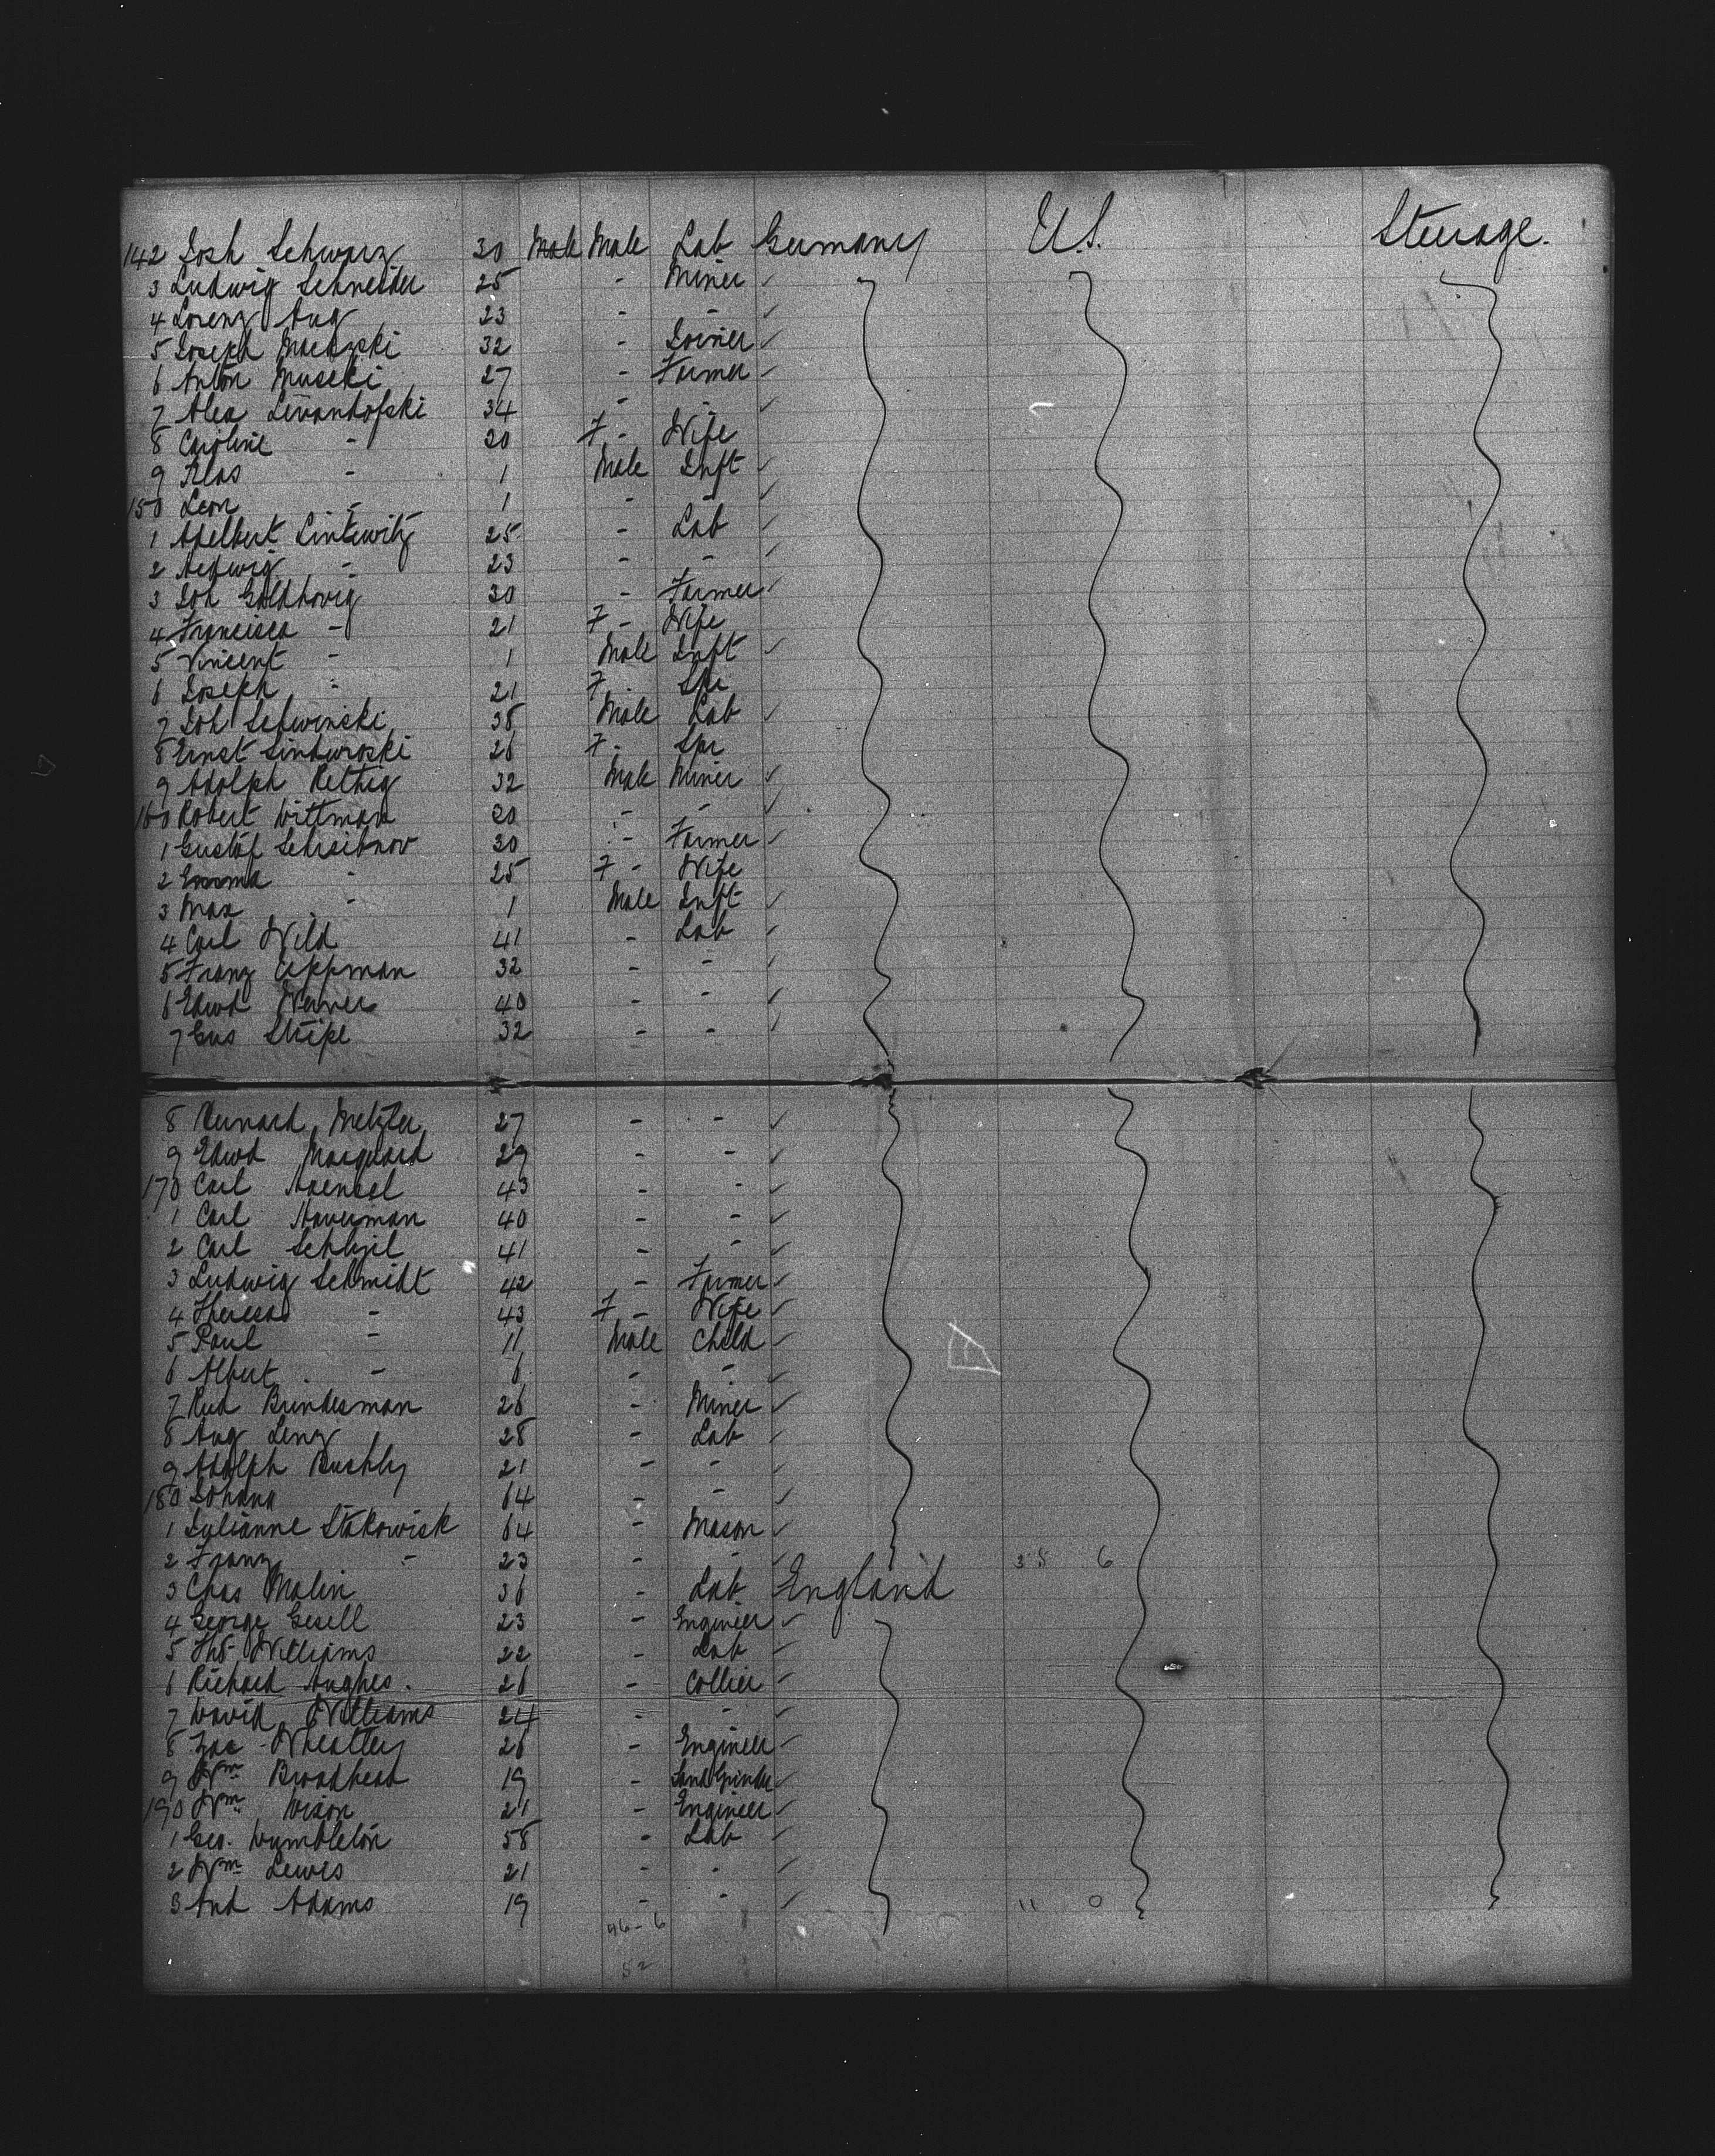 142 Josh Schwarz 30 Male Male Lab Germany U.S. Steerage.
3 Ludwig Schneider 25 - Miner
4 Lorenz Aug 23 - -
5 Joseph 32 - Joiner
6 Anton Museki 27 - Farmer
7 Alex Levandofski 34 - -
8 Caroline - 20 F - Wife
9 - 1 Male Inft
150 Leon - 1 - -
1 Adelbert Lintewitz 25 - Lab
2 Hedwig - 23 - -
3 Joh Goldhovig 30 - Farmer
4 Francisca - 21 F - Wife
5 Vincent - 1 Male Inft
6 Joseph - 21 F - Spr
7 Joh 35 Male Lab
8 Ernst 26 F - Spr
9 Adolph Rettig 32 Male Miner
160 Robert Wittman 20 - -
1 Gustaf 30 - Farmer
2 Emma - 25 F - Wife
3 Max - 1 Male Inft
4 Carl Wild 41 - Lab
5 Franz Uppman 32 - -
6 Edwd Werner 40 - -
7 Gus Stripe 32 - -
8 Bernard Metzler 27 - -
9 Edwd Marquard 29 - -
170 Carl Haensel 43 - -
1 Carl Haverman 40 - -
2 Carl 41 - -
3 Ludwig Schmidt 42 - Farmer
4 Theresa - 43 F - Wife
5 Paul - 11 Male Child
6 Albert - 6 - -
7 Rud Bundesman 26 - Miner
8 Aug Lenz 28 - Lab
9 Adolph Buchly 21 - -
180 Johana 64 - -
1 Julianne Stakowisk 64 - Mason
2 Franz - 23 - - 35 6
3 Chas Malin 36 - Lab England
4 George Gesell 23 - Engineer
5 Thos Williams 22 - Lab
6 Richard Hughes. 26 - Collier
7 David Williams 24 - -
8 Wheatley 26 - Engineer
9 Wm Broadhead 19 - Sand Grinder
190 Wm Dixon 21 - Engineer
1 Geo. Dumbleton 58 - Lab
2 Wm Lewis 21 - -
3 And Adams 19 - - 11 0
46 - 6
52